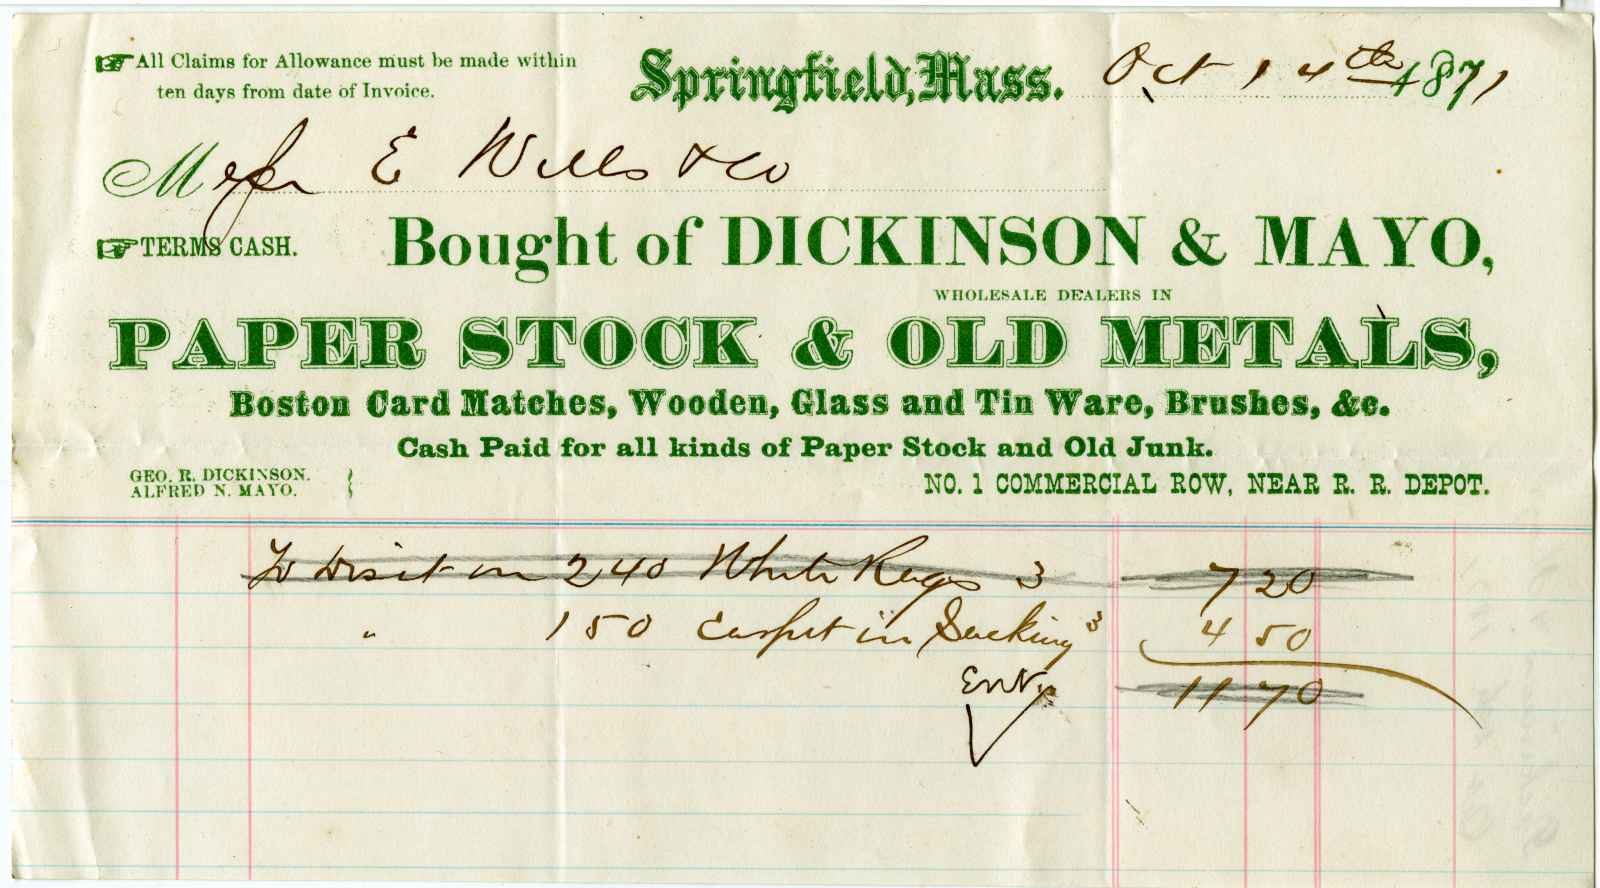 All Claims for Allowance must be made within
ten days from date of Invoice.
Springfield, Mass. Oct 14th 1871
Messr E Wells & Co
TERMS CASH.
Bought of DICKINSON & MAYO,
WHOLESALE DEALERS IN
PAPER STOCK & OLD METALS,
Boston Card Matches, Wooden, Glass and Tin Ware, Brushes, &c.
Cash Paid for all kinds of Paper Stock and Old Junk.
GEO. R. DICKINSON.
ALFRED N. MAYO.
NO. 1 COMMERCIAL ROW, NEAR R. R. DEPOT.
To on 240 White Rags 3 7 20
" 150 in Sacking 3 4 50
11 70